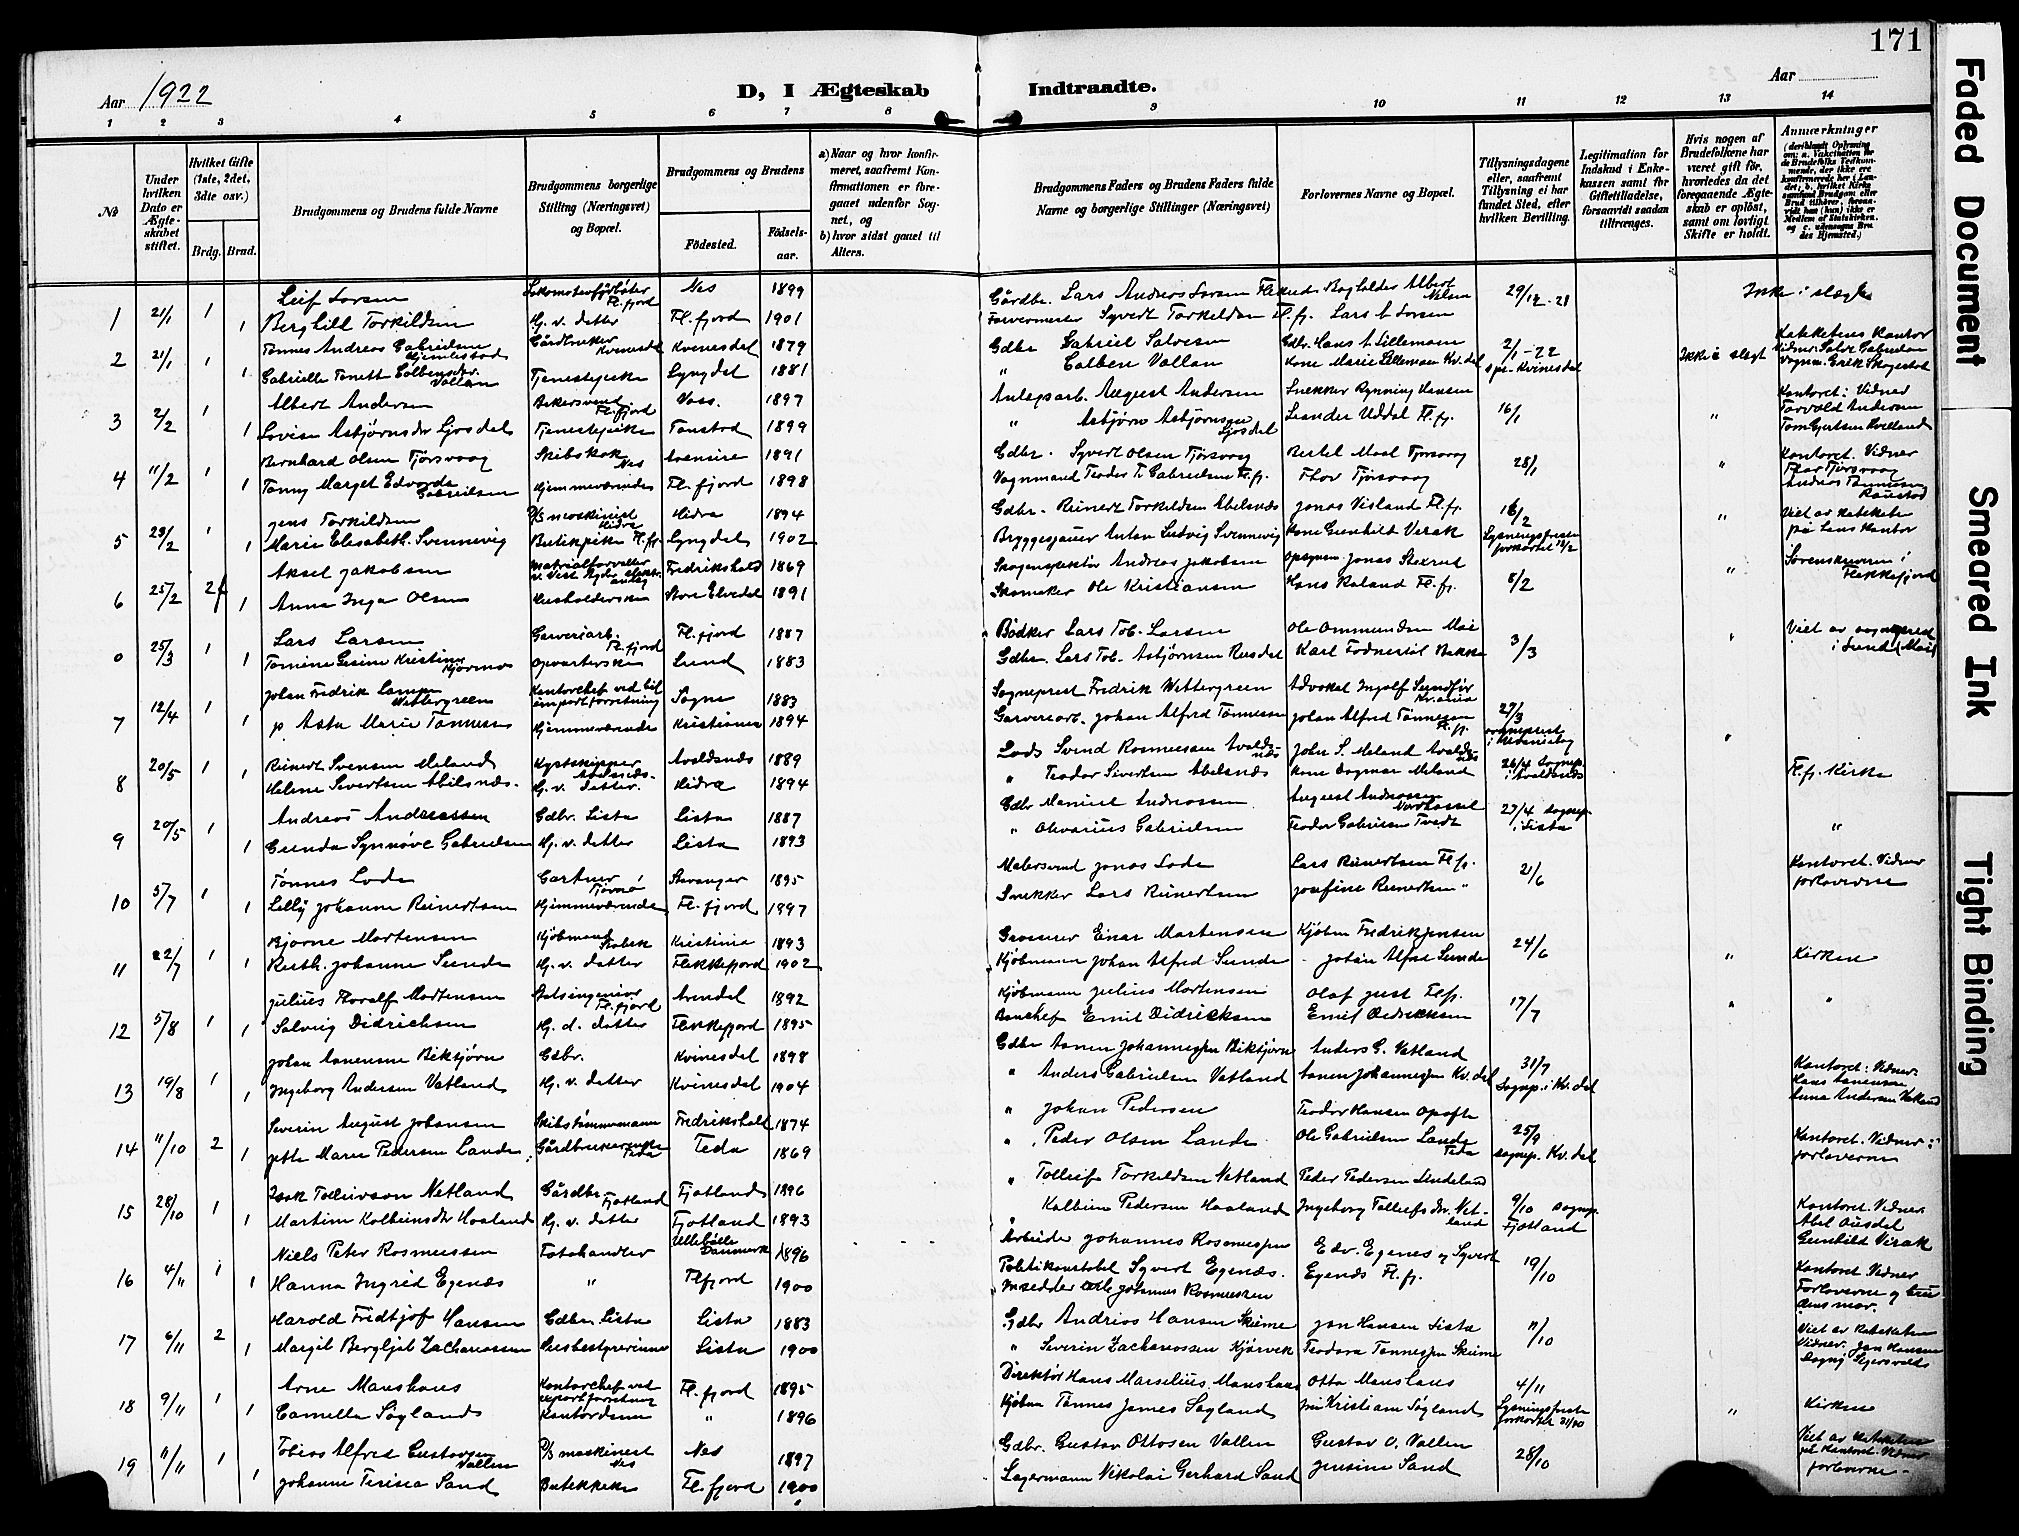 171
Aar 1922
D, I Ægteskab Indtraadte.
Aar
1 2 3 4 5 6 7 8 9 10 11 12 13 14
No
Under hvilken Dato er Ægteskabet stiftet.
Hvilket Gifte (1ste, 2det, 3die osv.)
Brdg. Brud.
Brudgommens og Brudens fulde Navne
Brudgommens borgerlige Stilling (Næringsvei) og Bopæl.
Brudgommens og Brudens
Fødested.
Fødselsaar.
a) Naar og hvor konfirmeret, saafremt Konfirmationen er foregaaet udenfor Sognet, og
b) hvor sidst gaaet til Alters.
Brudgommens Faders og Brudens Faders fulde Navne og borgerlige Stillinger (Næringsvei)
Forlovernes Navne og Bopæl.
Tillysningsdagene eller, saafremt Tillysning ei har fundet Sted, efter hvilken Bevilling.
Legitimation for Indskud i Enkekassen samt for Giftetilladelse, forsaavidt saadan tiltrænges.
Hvis nogen af Brudefolkene har været gift før, hvorledes da det foregaaende Ægteskab er opløst, samt om lovligt Skifte er holdt.
Anmærkninger
(deriblandt Oplysning om: a. Vakcination for de Brudefolks Vedkommende, der ikke ere konfirmerede her i Landet; b. hvilket Kirkesamfund Brudgom eller Brud tilhører, forsaavidt han (hun) ikke er Medlem af Statskirken, og c. udensogns Brudes Hjemsted.)
1 21/1 1 Leif Larsen Lokomotivfyrbøter Fl.fjord Nes 1899 Gårdbr. Lars Andreas Larsen Bogholder Albert Nilsen 29/12-21 Ikke i slægt
1 Berghild Torkildsen Hj. v. datter Fl.fjord 1901 Farvermester Syvert Torkildsen Fl.fj. Lars A Larsen
2 21/1 1 Tønnes Andreas Gabrielsen Gårdbruker Kvinesdal Kvinesdal 1879 Gdbr Gabriel Salvesen Gdbr. Hans A. Sillemoen 2/1-22 Ikke i slegt
1 Gabrielle Tonett Vallan Tjenestepike Lyngdal 1881 " Vallan Kone Marie Kv.dal spr. Kvinesdal
3 2/2 1 Albert Andersen Fl.fjord Voss. 1897 Anlegsarb. August Andersen Snekker Hansen 16/1 " Kontoret: Vidner
1 Lovise Asbjørnsdtr Ljosdal Tjenestepike Tonstad 1899 " Asbjørn Asbjørnsen Ljosdal Leander Uddal Fl.fj. Torvald Andersen
4 11/2 1 Bernhard Olsen Tjørsvaag Skibskok Nes 1891 Gdbr. Syvert Olsen Tjørsvaag Bertel Moal Tjorsvaag 28/1 " Kontoret. Vidner
1 Tonny Marget Gabrielsen Hjemmeværende Fl.fjord 1898 Vognmand Teodor T. Gabrielsen Fl.fj. Thor Tjørsvaag Thor Tjørsvaag
5 23/2 1 Jens Torkildsen D/S maskinist Hidra Hidra 1894 Gdbr. Reinert Torkildsen Abelsnes Jonas Visland Fl.fj. 16/2 " Viet av kateketen
1 Marie Elisabeth Svennevig Butikpike Fl.fj. Lyngdal 1902 Bryggesjauer Anton Ludvig Svennevig Kone Gunhild Virak Lysningsfriste forkortet 18/2 på Kontor
6 25/2 2 Aksel Jakobsen Materialforvalter Fredrikshald 1869 Andreas Jakobsen Opsynsm. Jonas 8/2 " Flekkefjord
1 Anna Inga Olsen Husholderske Store Elvedal 1891 Skomaker Ole Kristiansen Hans Roland Fl.fj.
0 25/3 1 Lars Larsen Garveriarb. Fl.fjord Fl.fjord 1887 Bødker Lars Tob. Larsen Ole Ommundsen Moi 3/3 " Viet av sogneprest
1 Tomine Gesine Kristine Opvarterske Lund 1883 Gdbr. Lars Tob. Asbjørnsen Rusdal Karl i Lund (Moi)
7 12/4 1 Johan Fredrik Lampe Wettergreen Kontorchef ved bilimportforretning Sogne 1883 Sogneprest Fredrik Wettergreen Advokat Ingolf Sundfør Kr.ania 27/3
1 Asta Marie Tønnessen Hjemmeværende Kristiania 1894 Garveriarb. Johan Alfred Tønnessen Johan Alfred Tønnesen Fl.fj. sogneprest "
8 20/5 1 Reinert Svensen Meland Kystskipper Avaldsnes Avaldsnes 1889 Lods Svend Rasmussen Avaldsnes John S. Meland Avaldsnes 26/4 sognep. i Avaldsnes Fl.fj. Kirke
1 Helene Sivertsen Abelsnes. Hj. v. datter. Hidra 1894 " Teodor Sivertsen Abelsnes Kone Dagmar Meland
9 20/5 1 Andreas Andreassen Gdbr. Lista Lista 1887 Gdbr Manuel Andreassen August Andreassen Nordhassel 27/4 sognep. i Lista "
1 Gunda Synnøve Gabrielsen Hj. v. datter Lista 1893 " Olvarius Gabrielsen Teodor Gabrielsen Tvedt
10 5/7 1 Tønnes Lode Gartner Stavanger 1895 Malersvend Jonas Lode Lars Reinertsen Fl.fj. 21/6 Kontoret. Vidner
1 Lilly Johanne Reinertsen Hjemmeværende Fl.fjord 1897 Snekker Lars Reinertsen Josefine Reinertsen " forloverne
11 22/7 1 Bjarne Mortensen Kjøbmand Stabek Kristiania 1893 Grosserer Einar Mortensen Kjøbm Fredrik Jensen 24/6 " Kirken
1 Ruth Johanne Sunde Hj. v. datter Flekkefjord 1902 Kjøbmann Johan Alfred Sunde Johan Alfred Sunde
12 5/8 1 Julius Thoralf Mortensen Statsingeniør Fl.fjord Arendal 1892 Kjøbmann Julius Mortensen Olaf Just Fl.fj. 17/7 " "
1 Solveig Didrichsen Hj. d. datter Flekkefjord 1895 Bankchef Emil Didricksen Emil Didricksen
13 19/8 1 Johan Aanensen Gdbr. Kvinesdal 1898 Gdbr Aanen Johannessen Anders G. Vatland 31/7 Kontoret: Vidner:
1 Ingeborg Andersen Vatland Hj. v. datter Kvinesdal 1904 " Anders Gabrielsen Vatland Aanen Johannessen Kv.dal Sognep. i Kv.dal Hans Aanensen
Anna Andersen Vatland
14 11/10 2 Severin August Johansen Skibstømmermann Fredrikshald 1874 " Johan Pedersen Teodor Hansen Opofte 25/9 Kontoret. Vidner:
1 Marie Pedersen Lande Feda 1869 " Peder Olsen Lande Ole Gabrielsen Lande Feda sognep. Kv.dal forloverne
15 28/10 1 Isak Tollevson Netland Gårdbr. Fjotland Fjotland 1896 " Tolleif Torkildsen Netland Peder Pedersen Lindeland 9/10 sognep. Fjotland Kontoret. Vidner
1 Martine Kolbeinsdtr Haaland Hj. v. datter Fjotland 1893 " Kolbein Pedersen Haaland Ingeborg Tolleifsdtr. Netland Abel Ousdal
Gunhild Virak
16 4/11 1 Niels Peter Rasmussen Fotohandler Danmark 1896 Arbeider Johannes Rasmussen Edv. Egenes og Syvert Egenes Fl.fj. 19/10 Kontoret. Vidner
1 Hanna Ingrid Egenæs " Flfjord 1900 Politikonstabel Syvert Egenæs. Forloverne og
Johannes Rasmussen
17 6/11 2 Harald Fridtjof Hansen Gdbr. Lista Lista 1883 Gdbr Andreas Hansen Skeime Jan Hansen Lista 11/10 Viet av kateketen
1 Margit Bergljot Zachariassen Husbestyrerinne Lista 1900 " Severin Zachariassen Kjørvek Teodora Tønnessen Skeime Vidner. Jan Hansen
18 9/11 1 Arne Manshaus Kontorchef ved exportforretning Fl.fjord 1895 Direktør Hans Marselius Manshaus Otto Manshaus 4/11 " Kirken
1 Camella Søgland Kontordame " 1896 Kjøbm Tønnes James Søgland Kristiane Søgland Lysningsfriste forkortet 31/10
19 11/11 1 Tobias Alfred Gustavsen Vallen D/S maskinist Nes Nes 1897 Gdbr. Gustav Ottosen Vallen Gustav O. Vallen 28/10 Viet av kateketen
1 Johanne Teresia Sand Butikkeke Fl.fjord 1900 Lagermann Nikolai Gerhard Sand Jensine Sand på Kontoret. Vidner
forloverne
Faded Document
Smeared Ink
Tight Binding